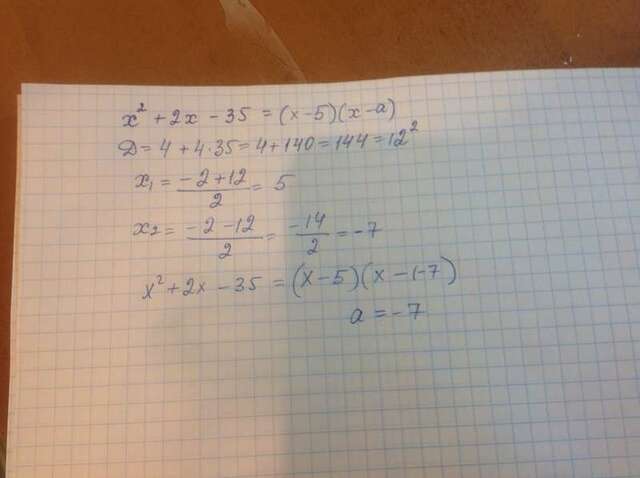 x² + 2x - 35 = (x-5)(x-a)
D = 4 + 4·35 = 4+140 = 144 = 12²
x₁ = (-2+12)/2 = 5
x₂ = (-2-12)/2 = -14/2 = -7
x² + 2x - 35 = (x-5)(x-(-7)
a = -7